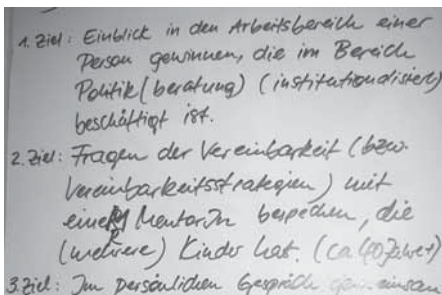 1. Ziel: Einblick in den Arbeitsbereich einer
Person gewinnen, die im Bereich
Politik(beratung) (institutionalisiert)
beschäftigt ist.
2. Ziel: Fragen der Vereinbarkeit (bzw.
Vereinbarkeitsstrategien) mit
MentorIn bespechen, die
(mehrere) Kinder hat. (ca 40 Jahre+)
3. Ziel: Im persönlichen Gespräch